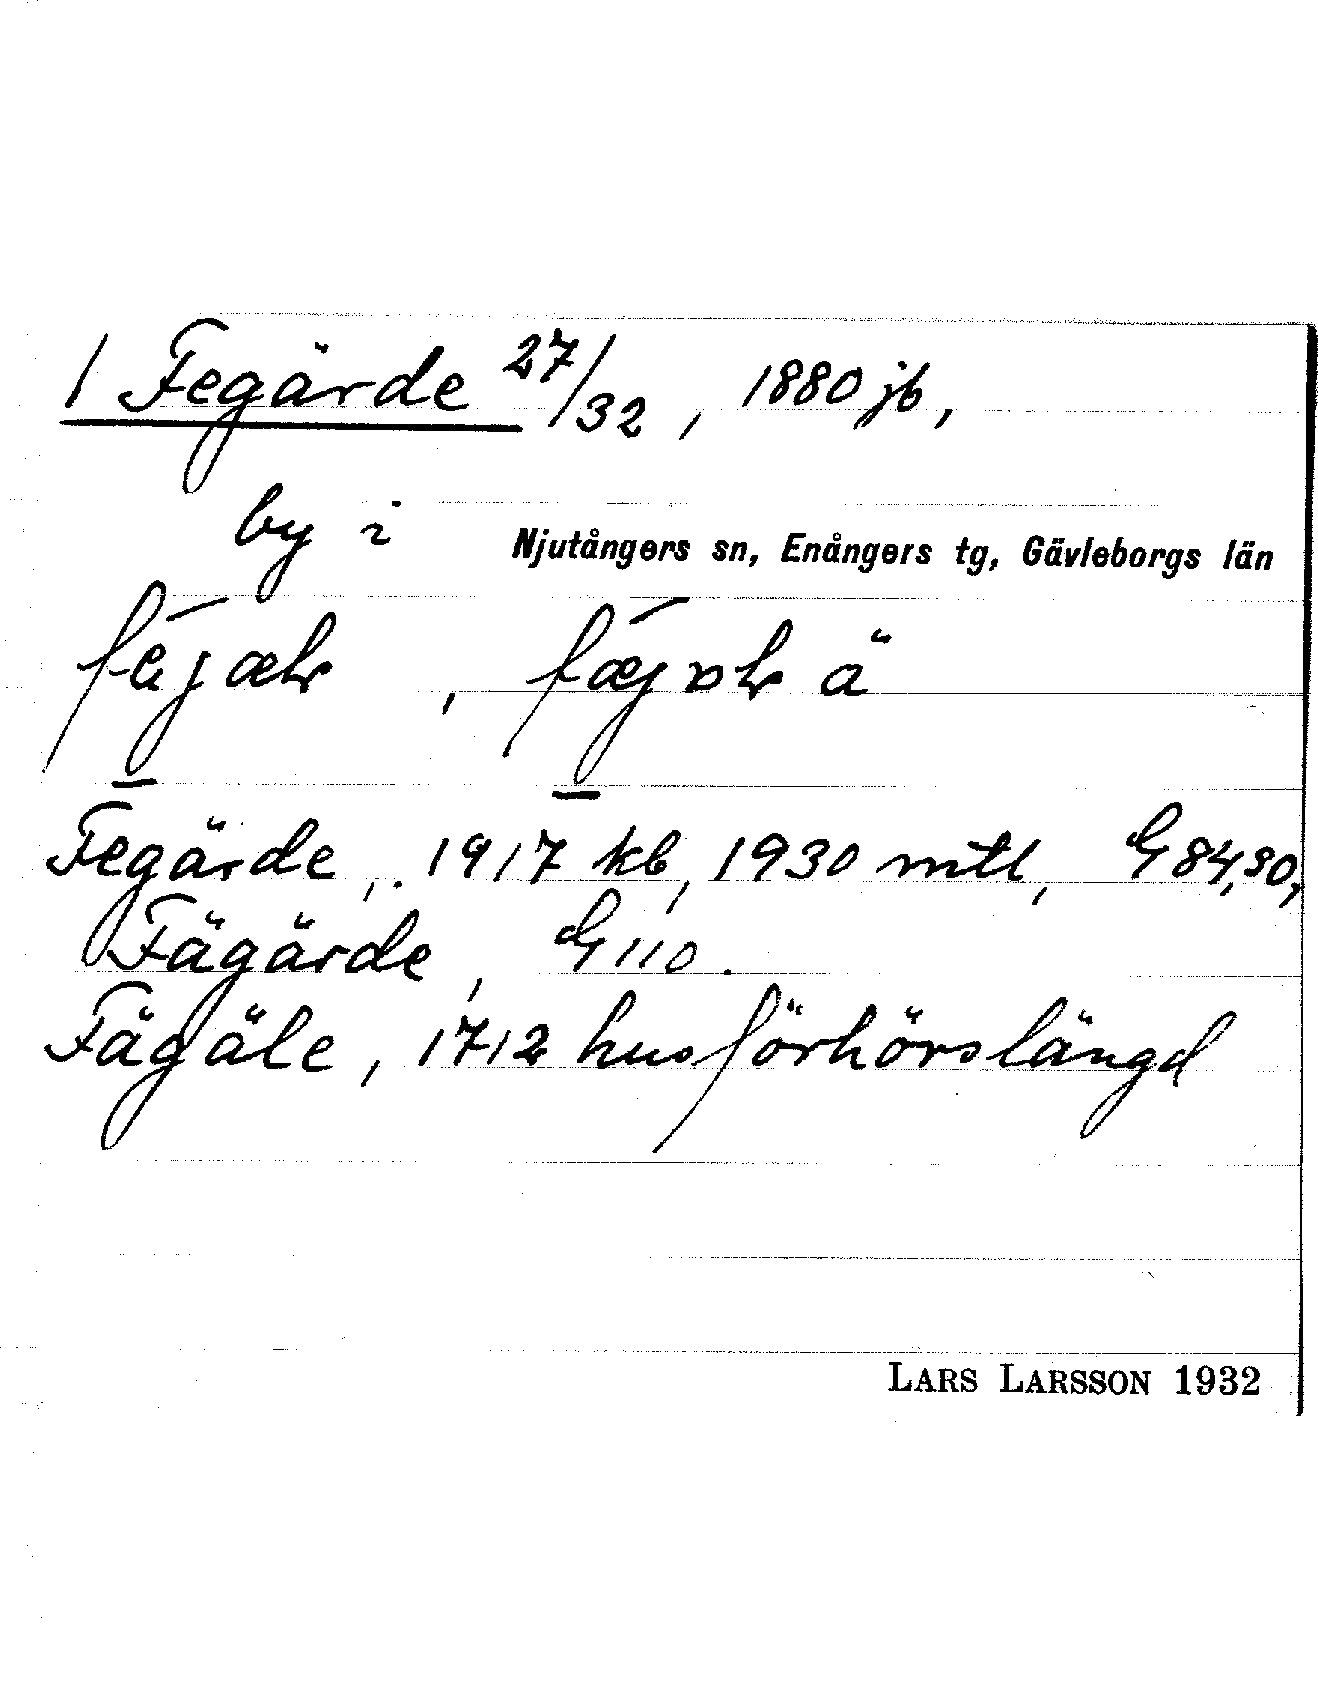 1 Fegärde 27/32, 1880 jb,
by i Njutångers sn, Enångers tg, Gävleborgs län
Fegärde, 1917 kb, 1930 mtl, G 84,90,
Fägärde, G 110.
Fägäle, 1712 husförhörslängd
LARS LARSSON 1932